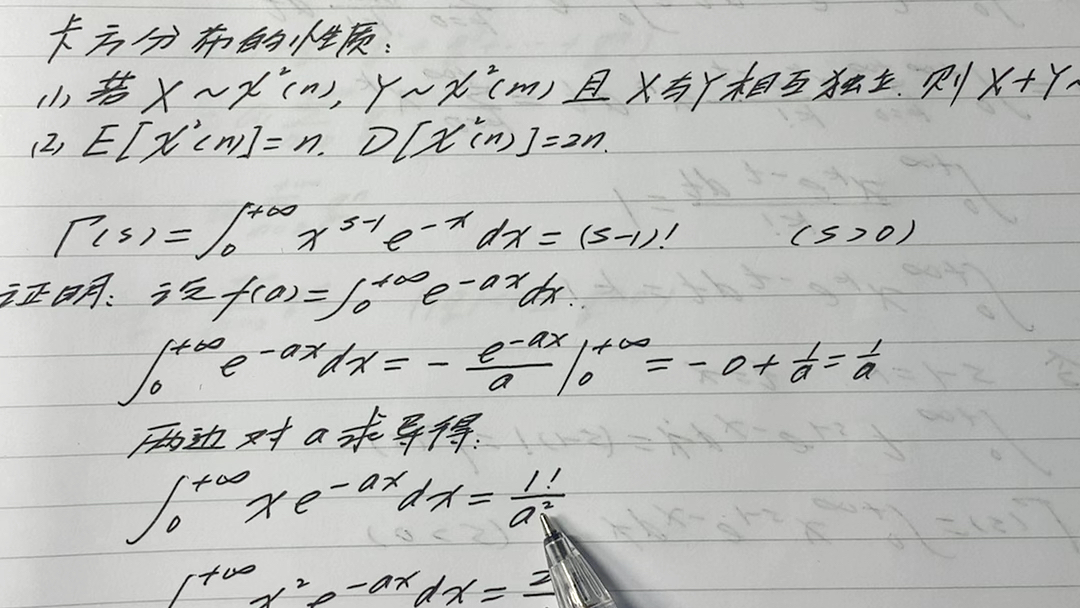 卡方分布的性质:
(1) 若 X~χ²(n), Y~χ²(m) 且 X与Y相互独立. 则 X+Y~
(2) E[χ²(n)]=n. D[χ²(n)]=2n.
Γ(s)=∫₀^{+∞} x^{s-1} e^{-x} dx=(s-1)! (s>0)
证明: 设 f(a)=∫₀^{+∞} e^{-ax} dx.
∫₀^{+∞} e^{-ax} dx = - e^{-ax}/a |₀^{+∞} = -0 + 1/a = 1/a
两边对a求导得:
∫₀^{+∞} x e^{-ax} dx = 1!/a²
∫₀^{+∞} x² e^{-ax} dx = 2